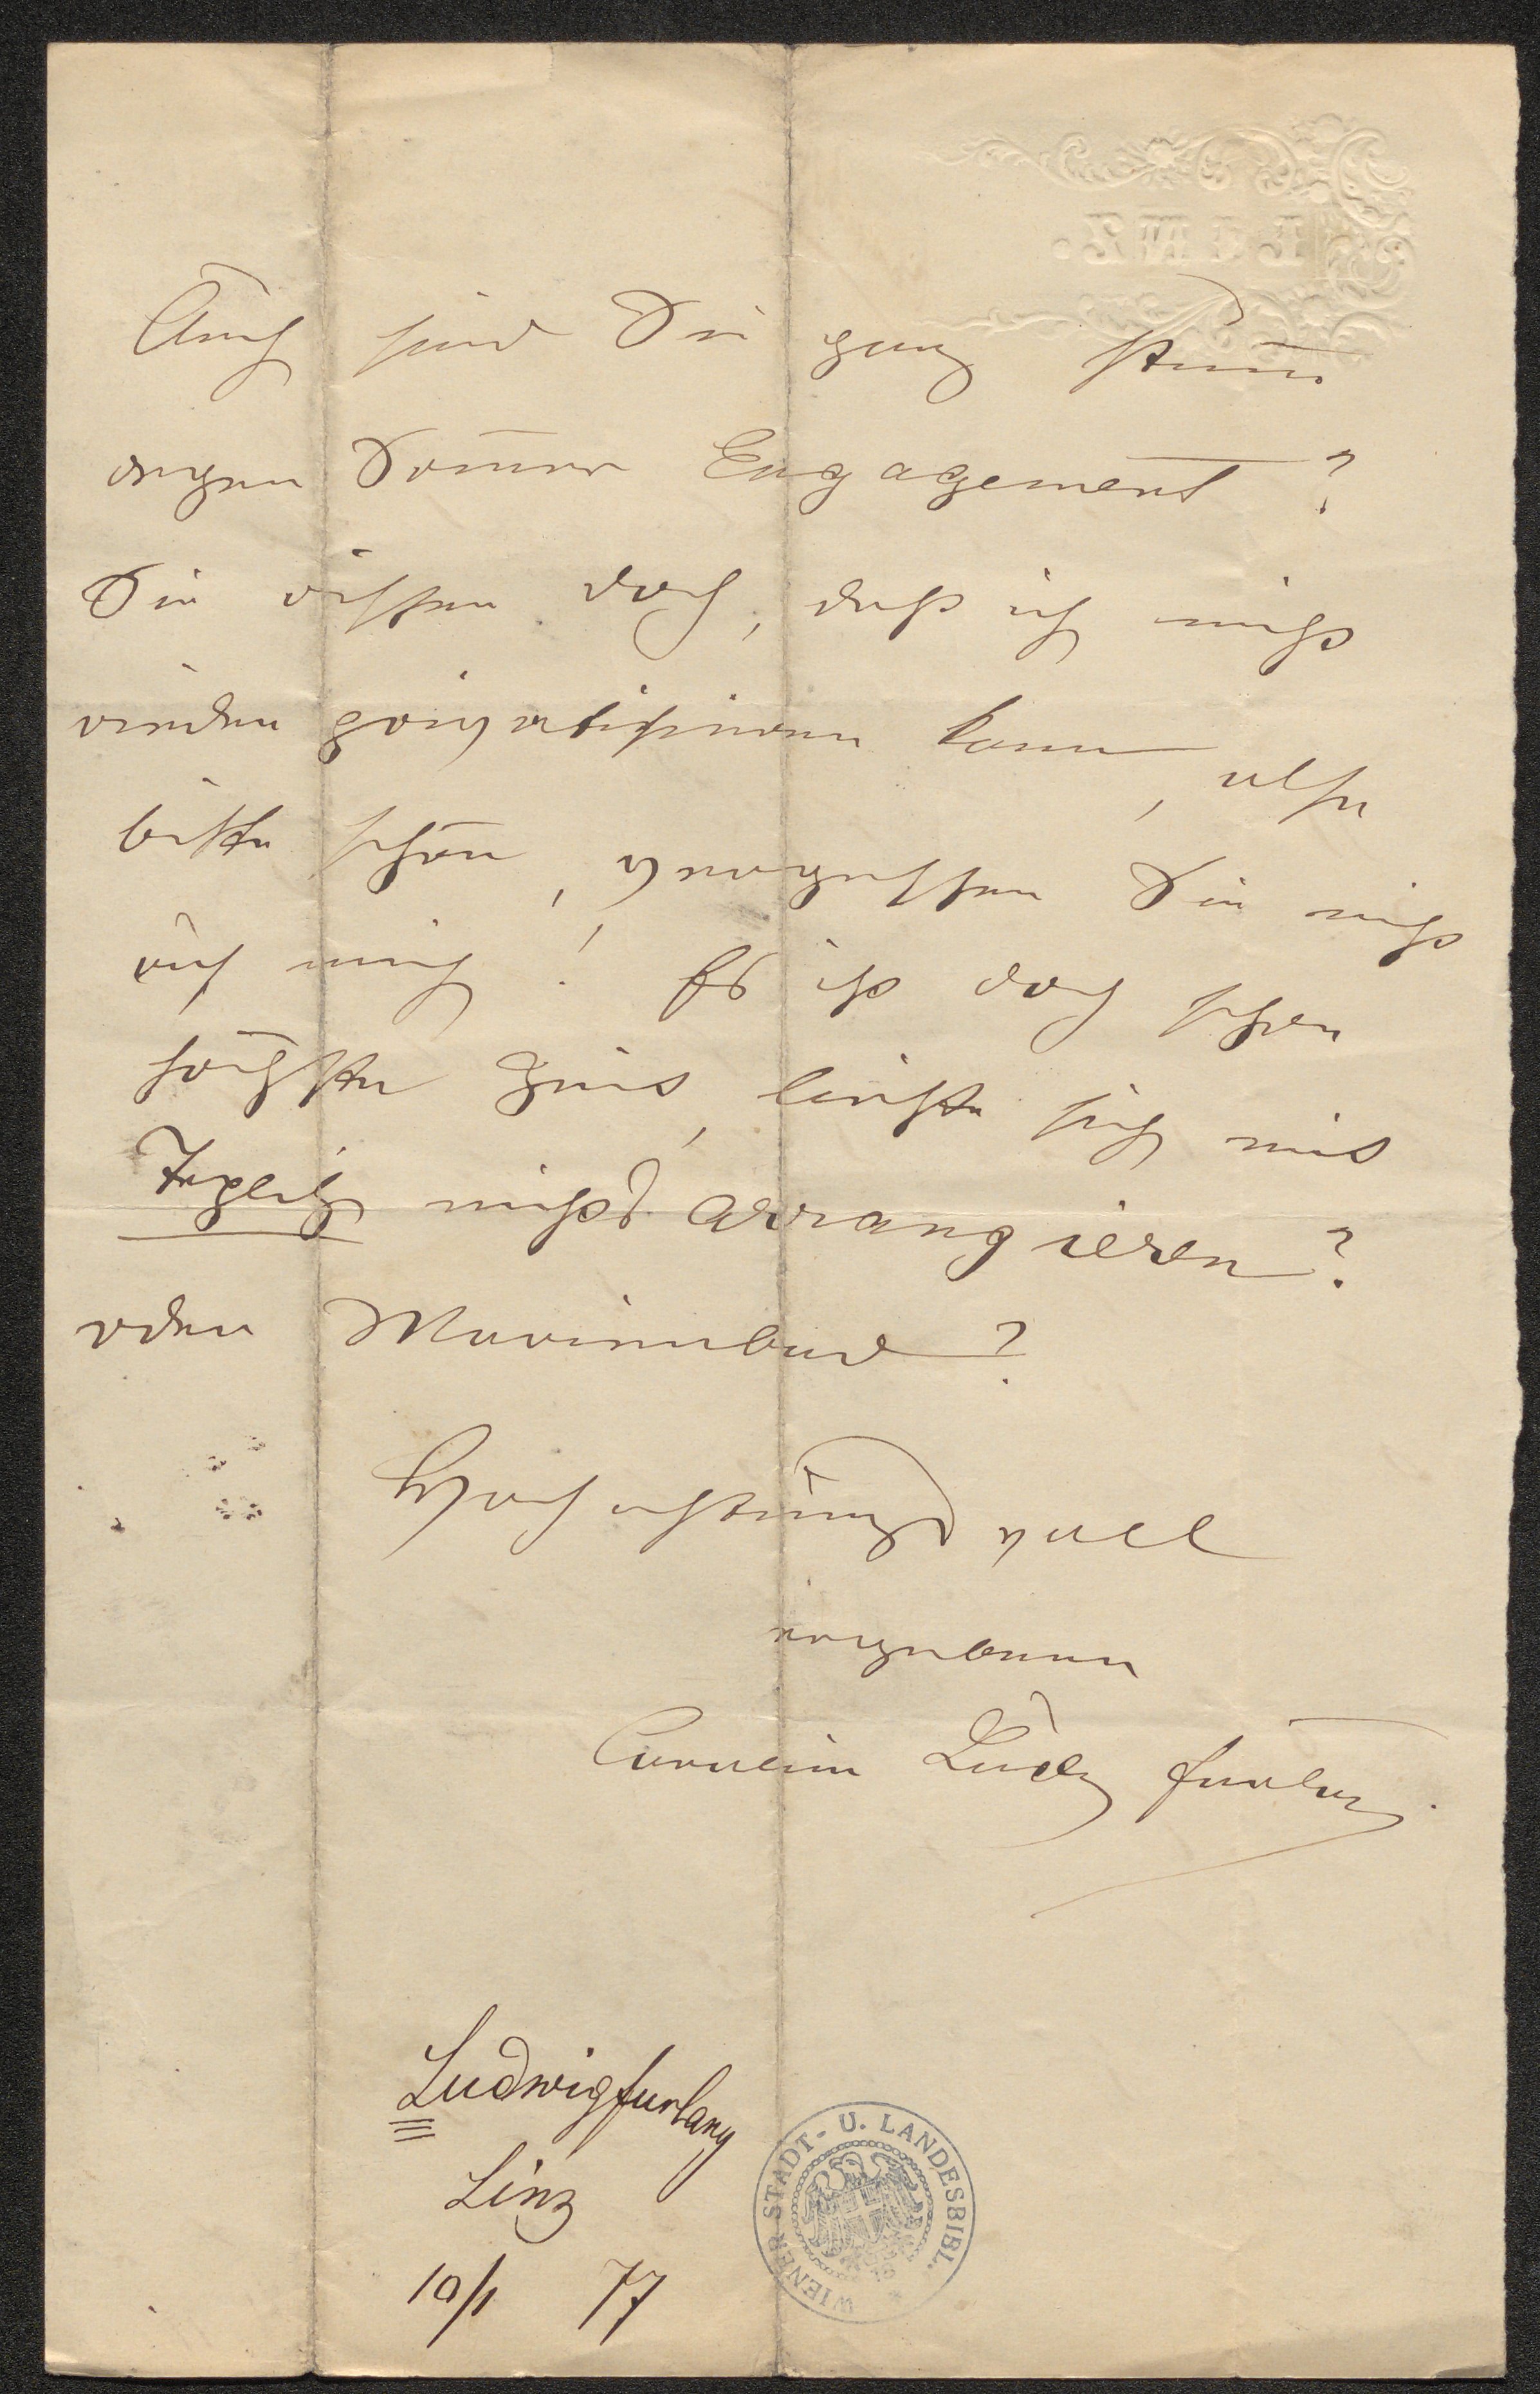 LINZ.
Auch sind Sie ganz stum̅
wegen Som̅er Engagement ?
Sie wissen doch, daß ich nicht
privatisieren kann, also
bitte schön, vergessen Sie nicht
auf mich ! Es ist doch schon
höchste Zeit, ließe sich mit
Teplitz nichts arrangieren ?
oder Marienbad ?
Hochachtungsvoll
ergebener
Ludw Furlany
Ludwig Furlany
Linz
10/1 77
WIENER STADT- U. LANDESBIBL.